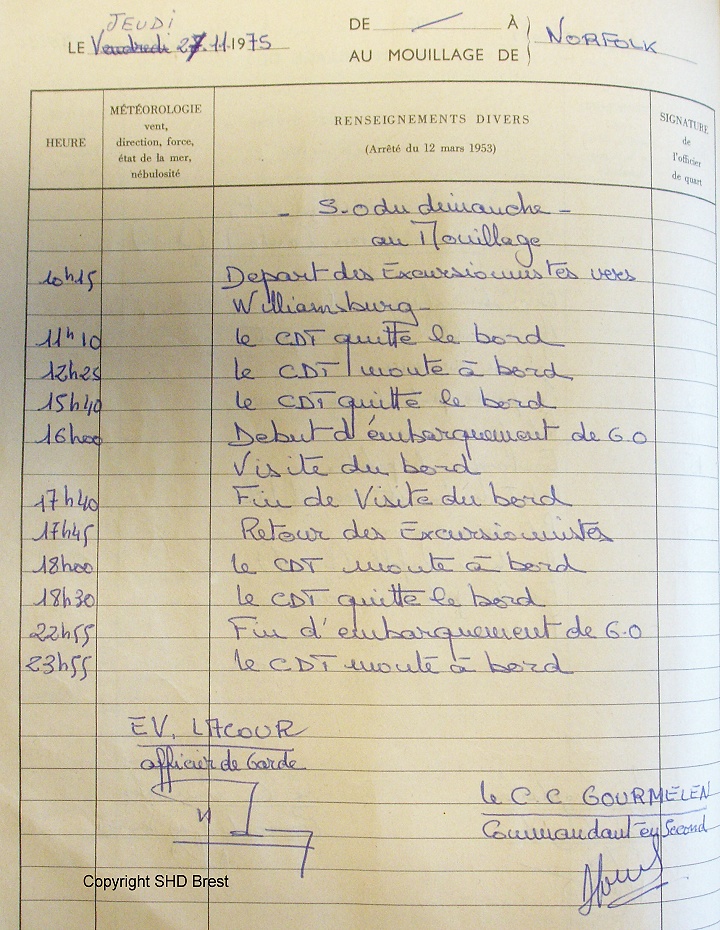 JEUDI
LE Vendredi 27.11.1975
DE — À
AU MOUILLAGE DE NORFOLK
HEURE
MÉTÉOROLOGIE
vent,
direction, force,
état de la mer,
nébulosité
RENSEIGNEMENTS DIVERS
(Arrêté du 12 mars 1953)
SIGNATURE
de
l'officier
de quart
- S.O du dimanche -
au Mouillage
10h15 Depart des Excursionnistes vers
Williamsburg -
11h10 le CDT quitte le bord
12h25 le CDT monte à bord
15h40 le CDT quitte le bord
16h00 Debut d'embarquement de G.O
Visite du bord
17h40 Fin de Visite du bord
17h45 Retour des Excursionnistes
18h00 le CDT monte à bord
18h30 le CDT quitte le bord
22h55 Fin d'embarquement de G.O
23h55 le CDT monte à bord
EV. LACOUR
officier de Garde
le C.C GOURMELEN
Commandant en Second
Copyright SHD Brest